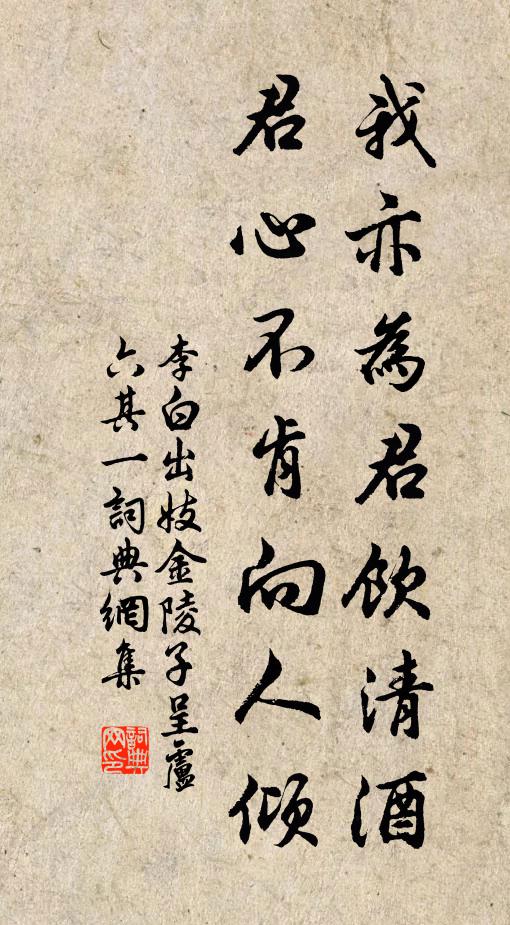 我亦為君飲清酒
君心不肯向人傾
李白出妓金陵子呈盧
六其一詞典網集
詞典
網印